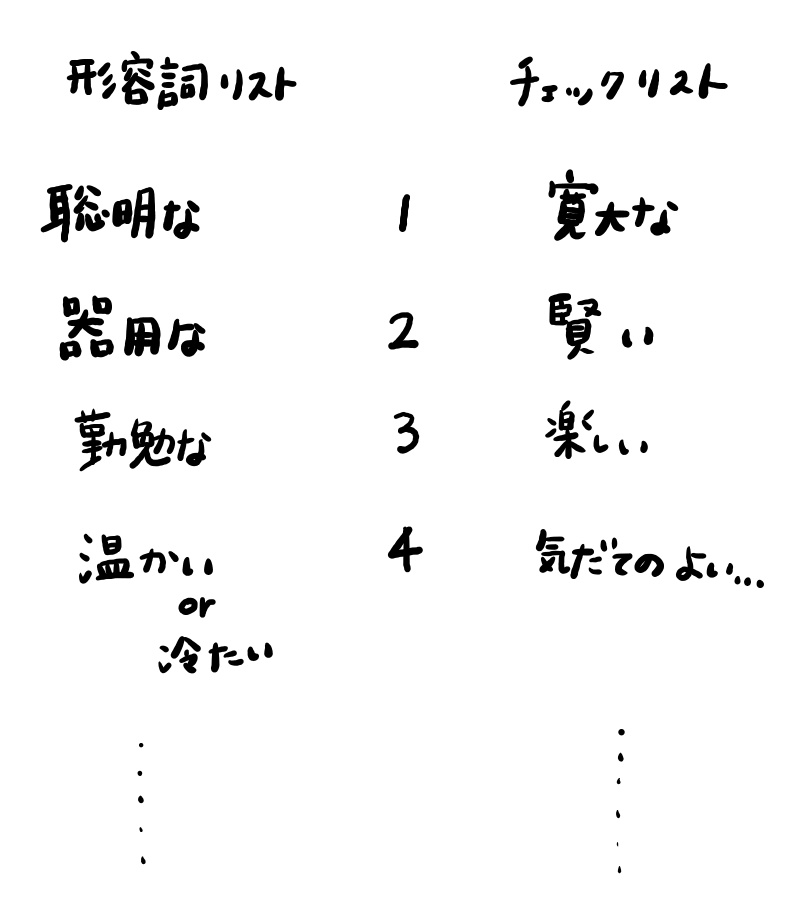 形容詞リスト チェックリスト
聡明な 1 寛大な
器用な 2 賢い
勤勉な 3 楽しい
温かい 4 気だてのよい...
or
冷たい